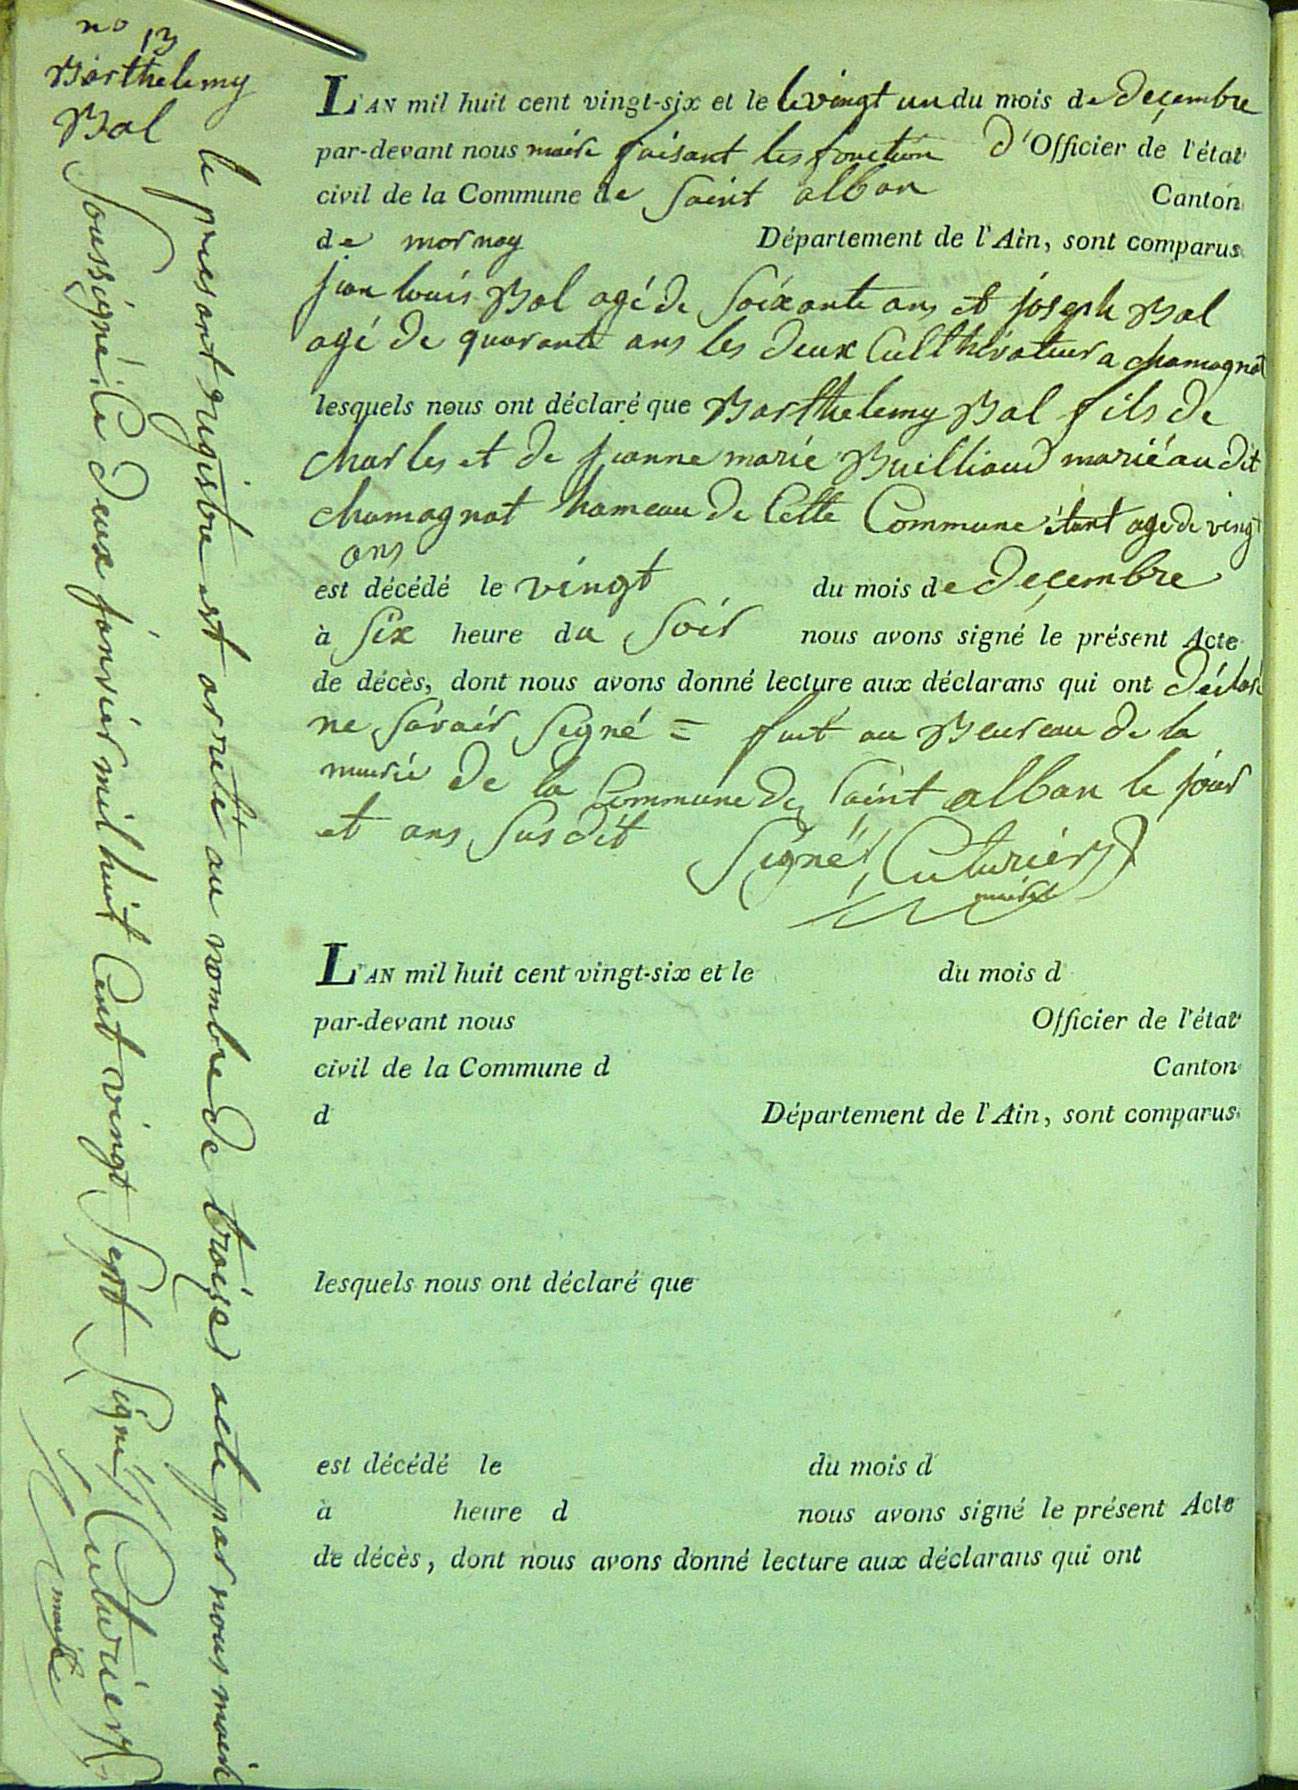 no 13
Barthelemy
Bal
L'AN mil huit cent vingt-six et le le vingt un du mois de deçembre
par-devant nous maire faisant les fonction d'Officier de l'état
civil de la Commune de Saint alban Canton
de mornay Département de l'Ain, sont comparus
jean louis Bal agé de Soixante ans et joseph Bal
agé de quarante ans les deux Culthivateur a chamagnat
lesquels nous ont déclaré que Barthelemy Bal fils de
charles et de jeanne marie Builliaud marié au dit
chamagnat hameau de Cette Commune étant agé de vingt
ans
est décédé le vingt du mois de deçembre
à Six heure du Soir nous avons signé le présent Acte
de décès, dont nous avons donné lecture aux déclarans qui ont déclaré
ne Savoir Signé = fait au Beureau de la
mairie de la Commune de Saint alban le jour
et ans Susdit Signé Cuturier
maire
L'AN mil huit cent vingt-six et le du mois d
par-devant nous Officier de l'état
civil de la Commune d Canton
d Département de l'Ain, sont comparus
lesquels nous ont déclaré que
est décédé le du mois d
à heure d nous avons signé le présent Acte
de décès, dont nous avons donné lecture aux déclarans qui ont
le presant registre est arreté au nombre de troize acte par nous maire
Soussigné Ce deux janvier mil huit Cent vingt Sept Signé Cuturier
maire